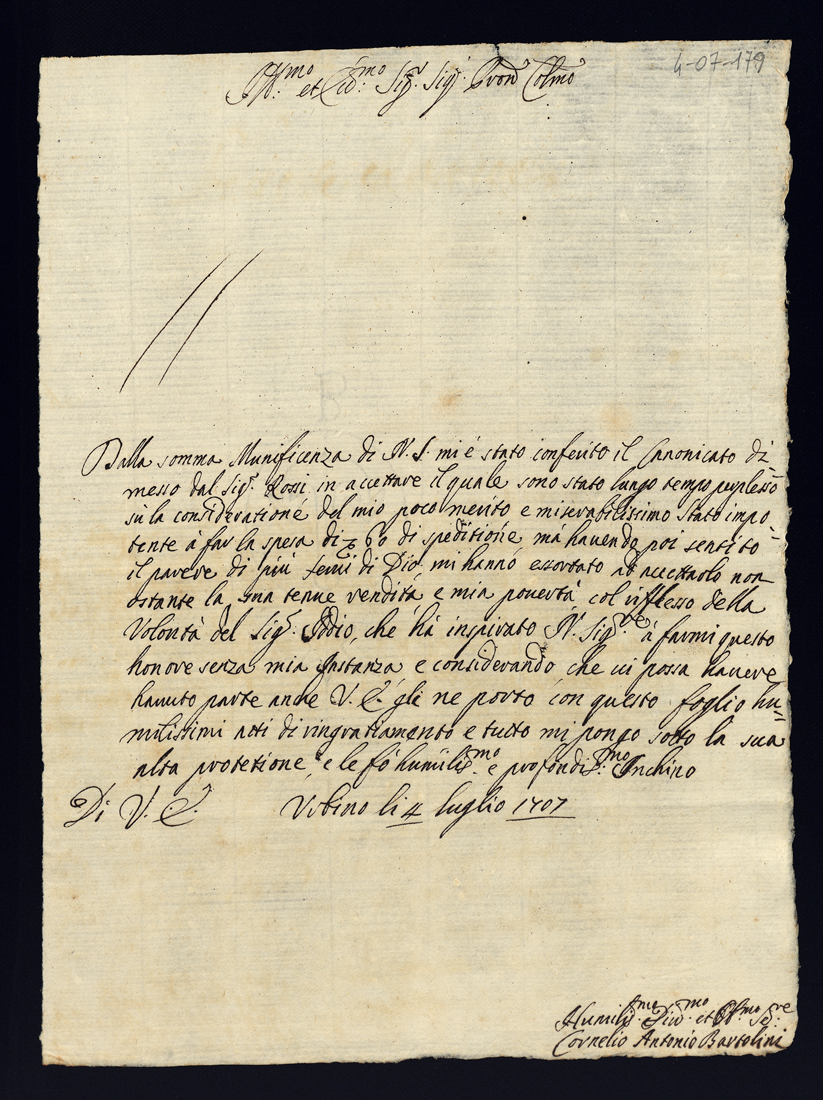 4-07-179
Ill:mo et Ecc:mo Sig.r Sig.r Pron Colmo
Dalla somma Munificenza di N. S. mi è stato conferito il Canonicato di
messo dal Sig.r Rossi in accettare il quale sono stato lungo tempo perplesso
sù la consideratione del mio poco merito e miserabilissimo stato impo=
tente à far la spesa di 60 di speditione, mà havendo poi sentito
il parere di più servi di Dio mi hanno exortato ad accettarlo non
ostante la sua tenue rendità e mia povertà col riflesso della
Volontà del Sig.r Iddio, che hà inspirato N. Sig.re à farmi questo
honore senza mia Instanza e considerando che vi possa havere
havuto parte anche V. E. gli ne porto con questo foglio hu=
milissimi atti di ringratiamento e tutto mi pongo sotto la sua
alta protetione, e le fò humilis.mo e profondis.mo Inchino
Di V. E. Urbino li 4 luglio 1707
Humilis.mo Div.mo et Obl.mo Se.re
Cornelio Antonio Bartolini